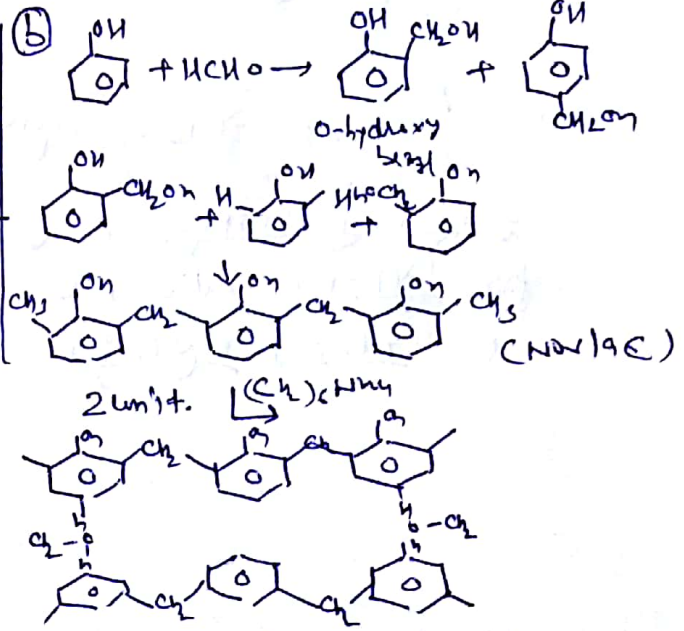 (b) OH + HCHO → OH CH2OH + OH CH2OH
O-hydroxy
benzyl
OH CH2OH + H OH H HOCH2 + OH
CH3 OH CH2 ↓ OH CH2 OH CH3
(NOVlaE)
2 unit. (CH2)6NH4
OH CH2 OH CH2 OH
CH2 - H O H H O - CH2 H
CH2 CH2